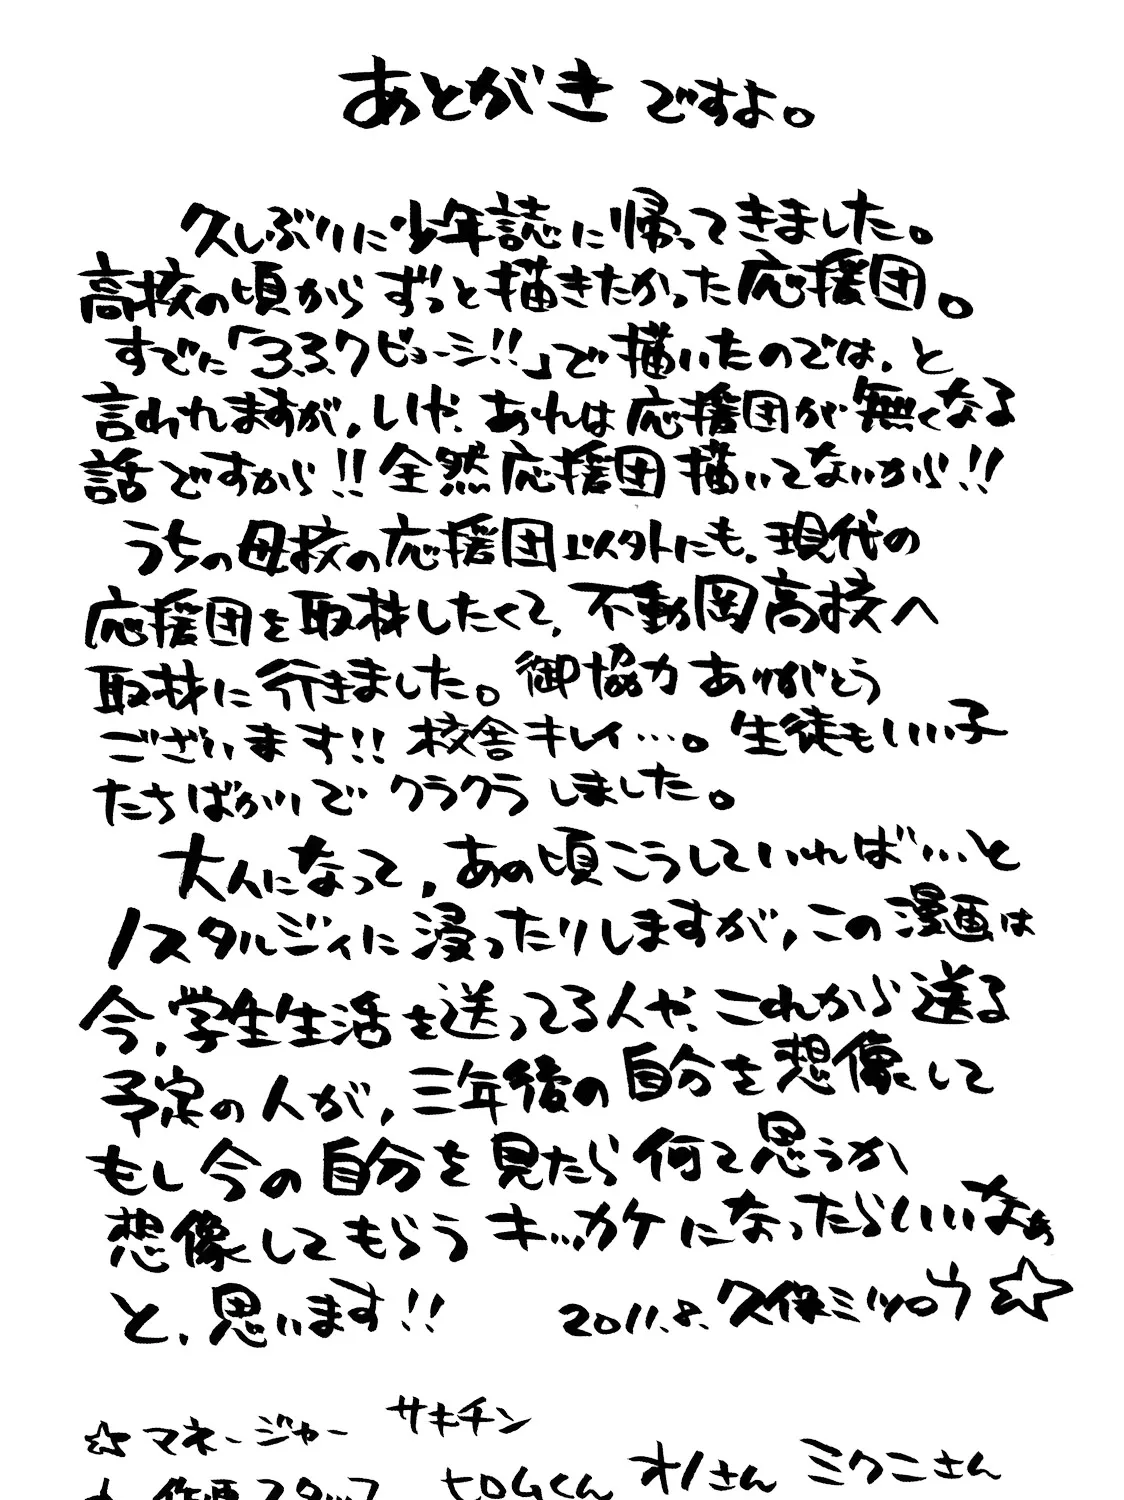 あとがきですよ。
久しぶりに少年誌に帰ってきました。
高校の頃からずっと描きたかった応援団。
すでに「3.3.7ビョーシ!!」で描いたのでは、と
言われますが、いや、あれは応援団が無くなる
話ですから!!全然応援団描いてないから!!
うちの母校の応援団以外にも、現代の
応援団を取材したくて、不動岡高校へ
取材に行きました。御協力ありがとう
ございます!!校舎キレイ…。生徒もいい子
たちばかりでクラクラしました。
大人になって、あの頃こうしていれば…と
ノスタルジィに浸ったりしますが、この漫画は
今、学生生活を送ってる人や、これから送る
予定の人が、三年後の自分を想像して
もし今の自分を見たら何て思うか
想像してもらうキッカケになったらいいなぁ
と、思います!! 2011.8.久保ミツロウ☆
☆マネージャー サキチン
作画スタッフ ヒロムくん オノさん ミクニさん